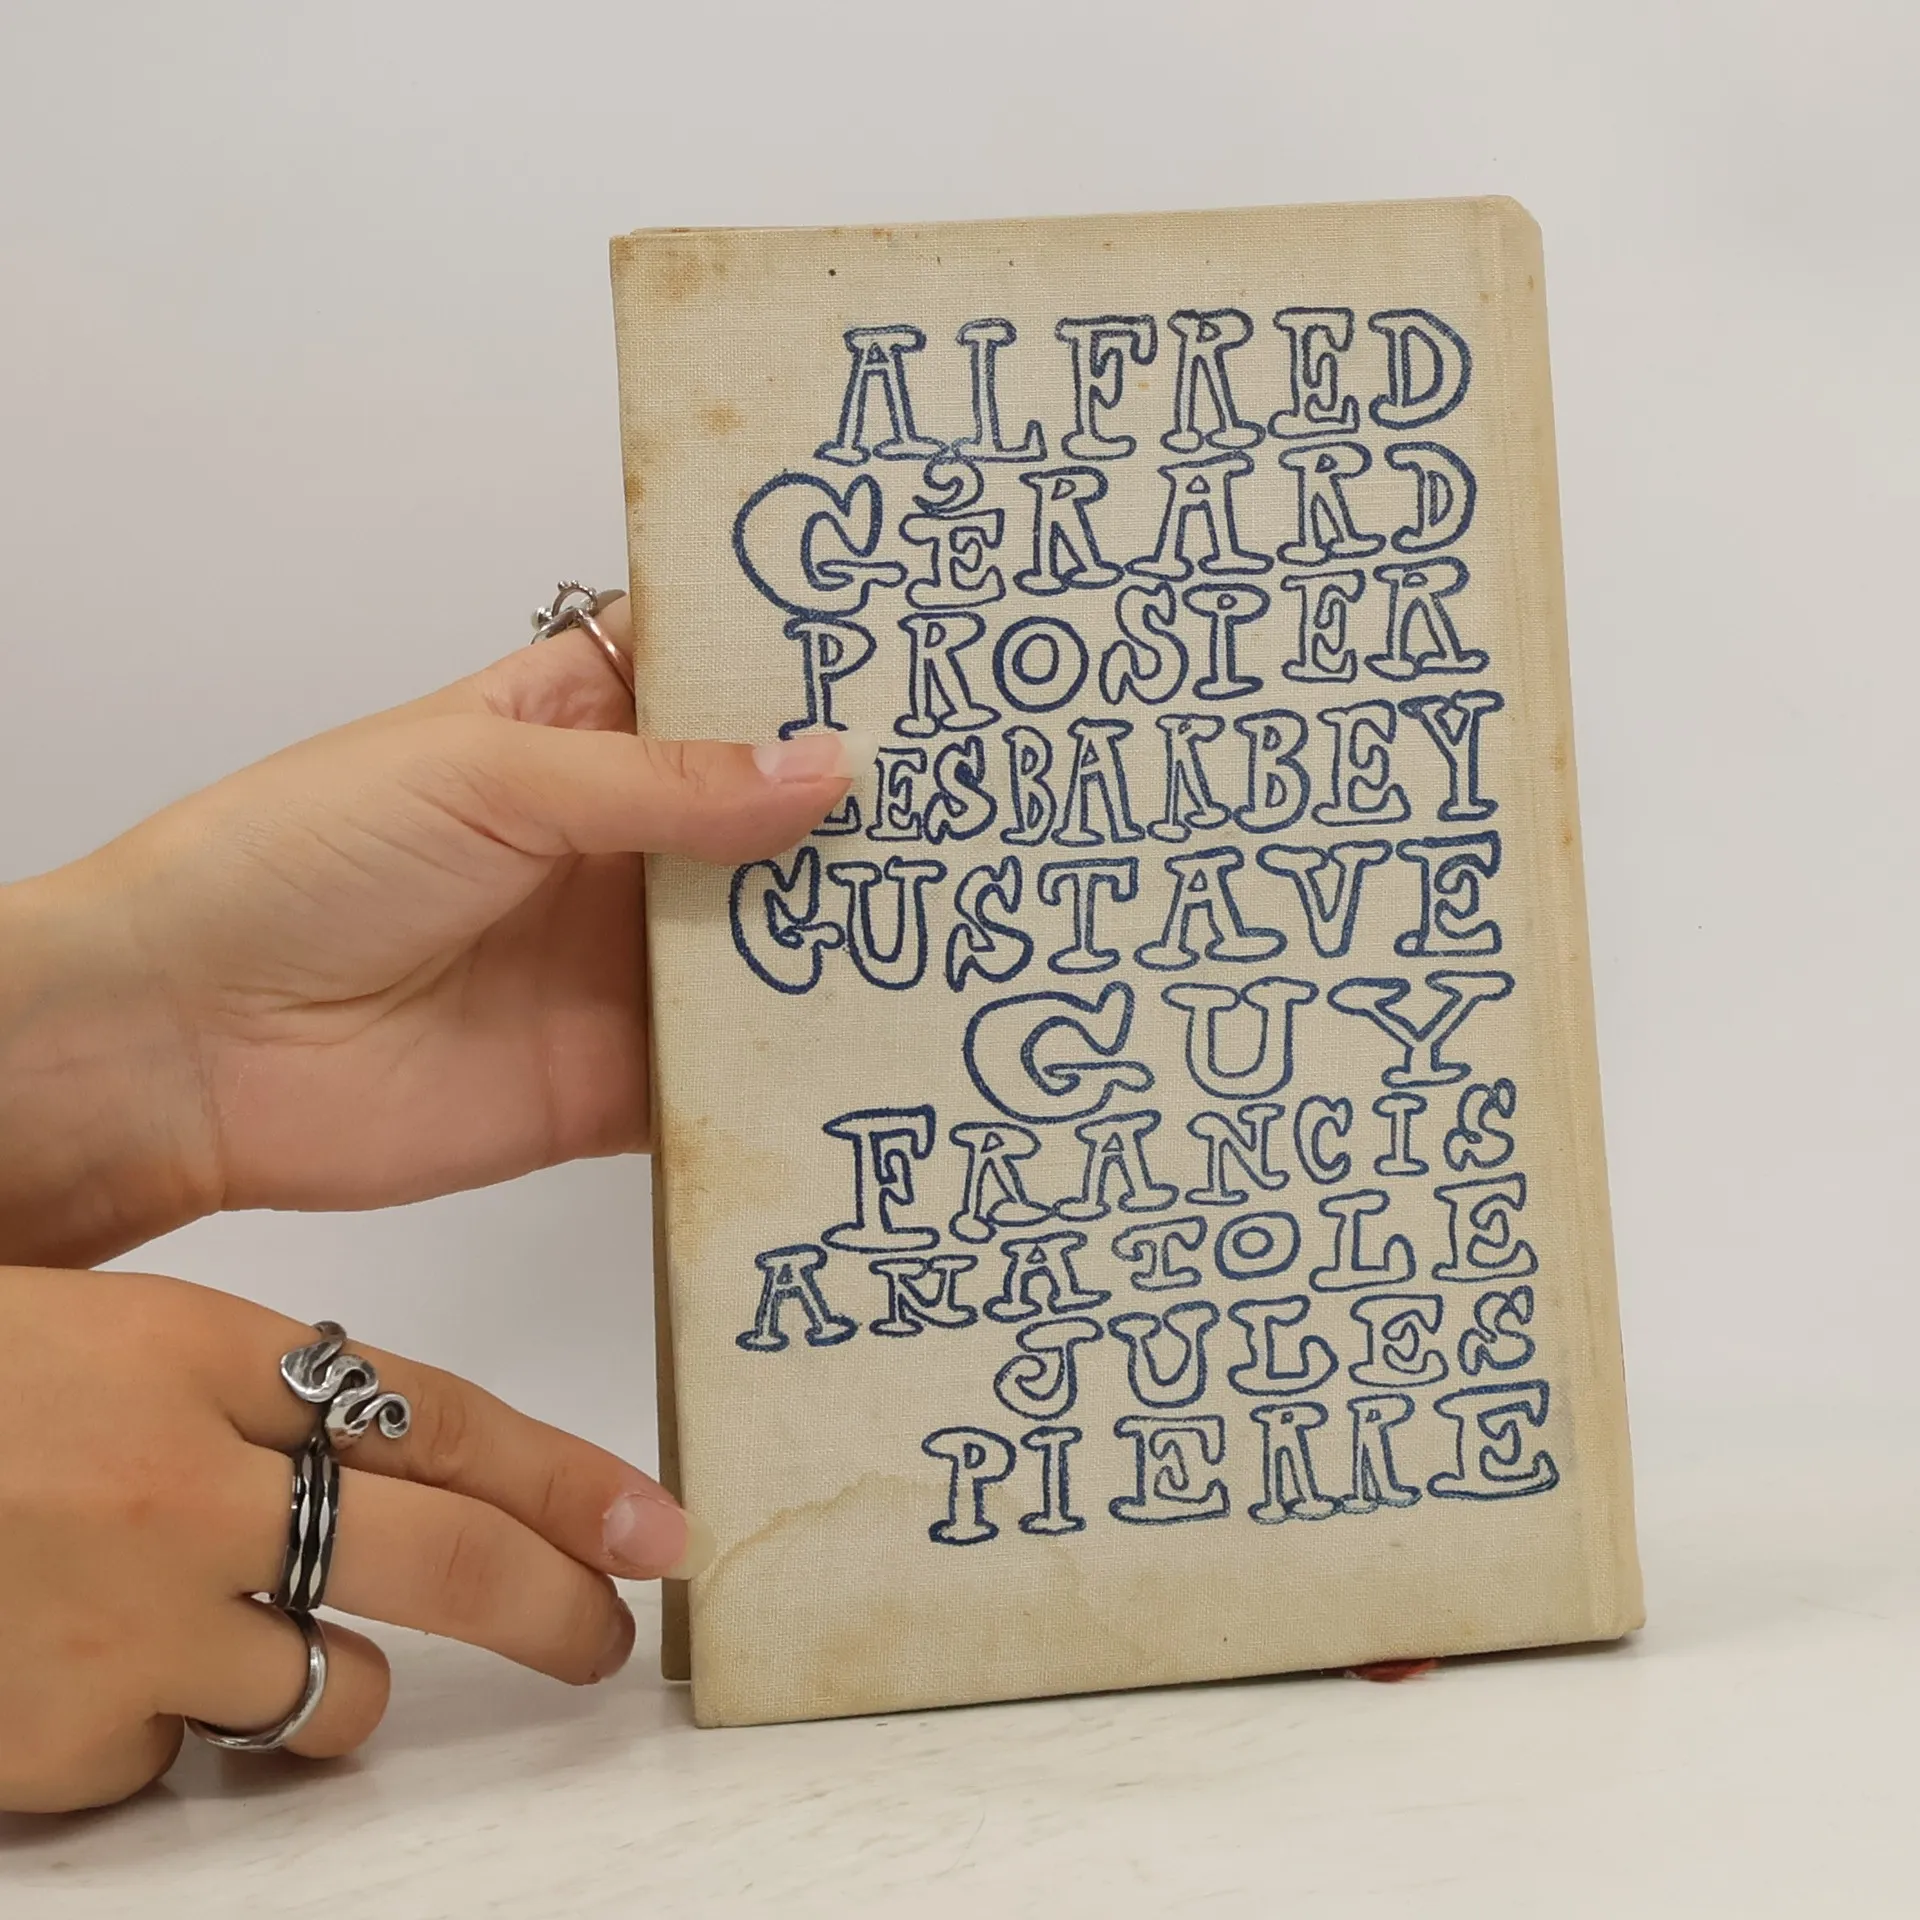 ALFRED
GÉRARD
PROSPER
LESBARBEY
GUSTAVE
GUY
FRANCIS
ANATOLE
JULES
PIERRE